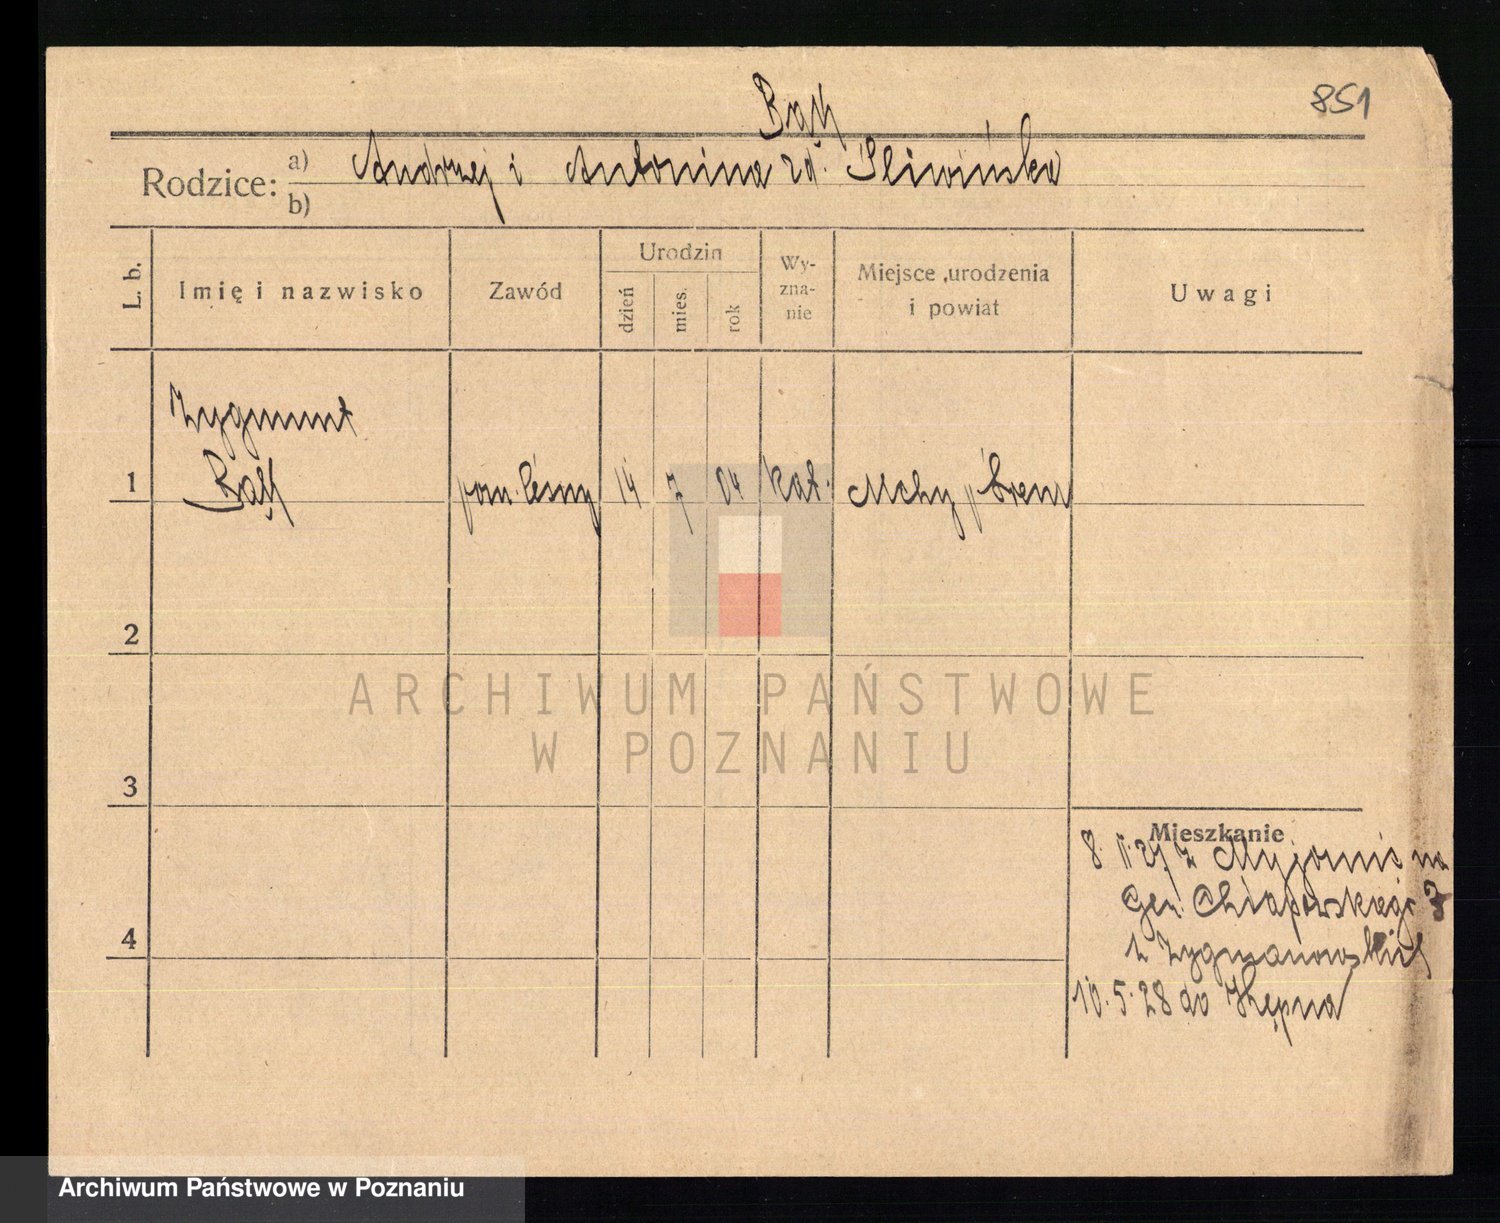 851
Bąk
Rodzice: a) Andrzej i Antonina zd. Śliwińska
b)
L. b.
Imię i nazwisko
Zawód
Urodzin
dzień
mies.
rok
Wy-
zna-
nie
Miejsce urodzenia
i powiat
Uwagi
Zygmunt
1 Bąk pom. leśny 14 7 04 kat. Mchy p Śrem
2
ARCHIWUM PAŃSTWOWE
W POZNANIU
3
Mieszkanie
8. 27 z na
Gen. Chłapowskiego 3
4
10.5.28 do Kępna
Archiwum Państwowe w Poznaniu